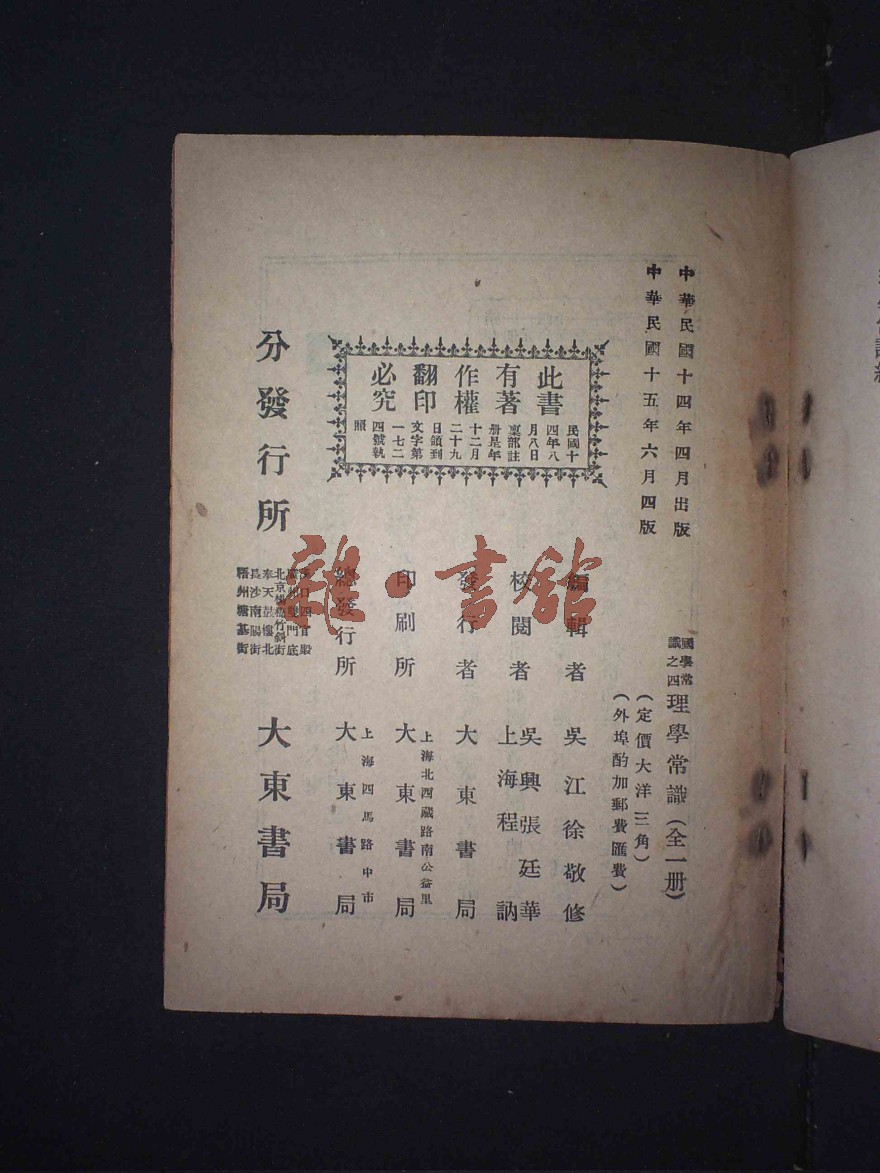 中華民國十四年四月出版
中華民國十五年六月四版
國學常識之四 理學常識(全一册)
(定價大洋三角)
(外埠酌加郵費匯費)
此書有著作權翻印必究
民國十四年八月八日稟部註册是年十二月二十九日領到文字第一七二四號執照
編輯者 吳江徐敬修
校閱者 吳興張廷華
上海程訥
發行者 大東書局
印刷所 上海北西藏路南公益里 大東書局
總發行所 上海四馬路中市 大東書局
分發行所 大東書局
北京楊梅竹斜街
奉天鼓樓北
長沙南陽街
梧州塘基街
雜·書館